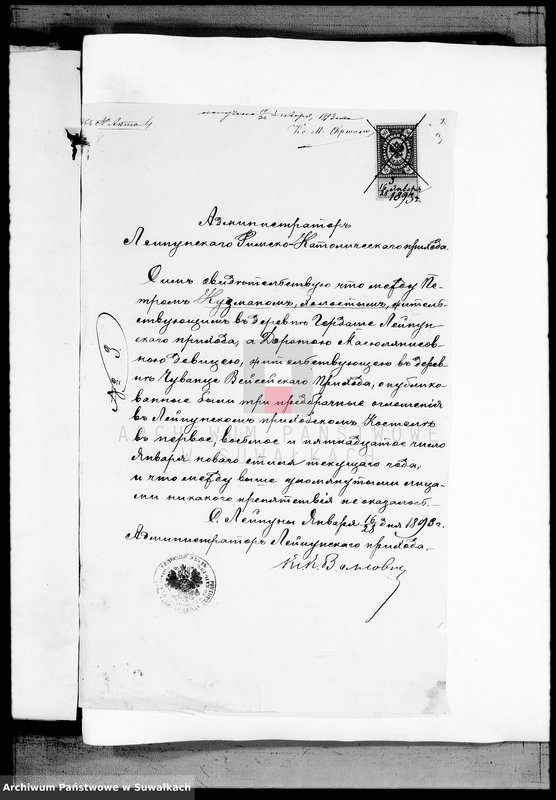 получено 16/28 Января 1893 года
Кс. М.
къ № Акта 4
3
16/28 Января
1893 г.
Администраторъ
Лейпунскаго Римско-Католическаго прихода.
Симъ свидѣтельствую что между Пе-
тромъ Кузмакомъ, холостымъ, житель-
ствующимъ въ деревнѣ Лейпун-
скаго прихода, а Доротою
ною девицею, жительствующею въ дерев-
нѣ Чуванце Вейсейскаго Прихода, опублико-
ванные были три предбрачные оглашенія
въ Лейпунскомъ приходскомъ Костелѣ
въ первое, восьмое и пятнадцатое число
Января новаго стиля текущаго года,
и что между выше упомянутыми лица-
ми никакого препятствія не оказалось.—
С. Лейпуны Января 16/28 дня 1893 г.
Администраторъ Лейпунскаго прихода.
№ 3
ARCHIWUM PAŃSTWOWE
W SUWAŁKACH
Archiwum Państwowe w Suwałkach